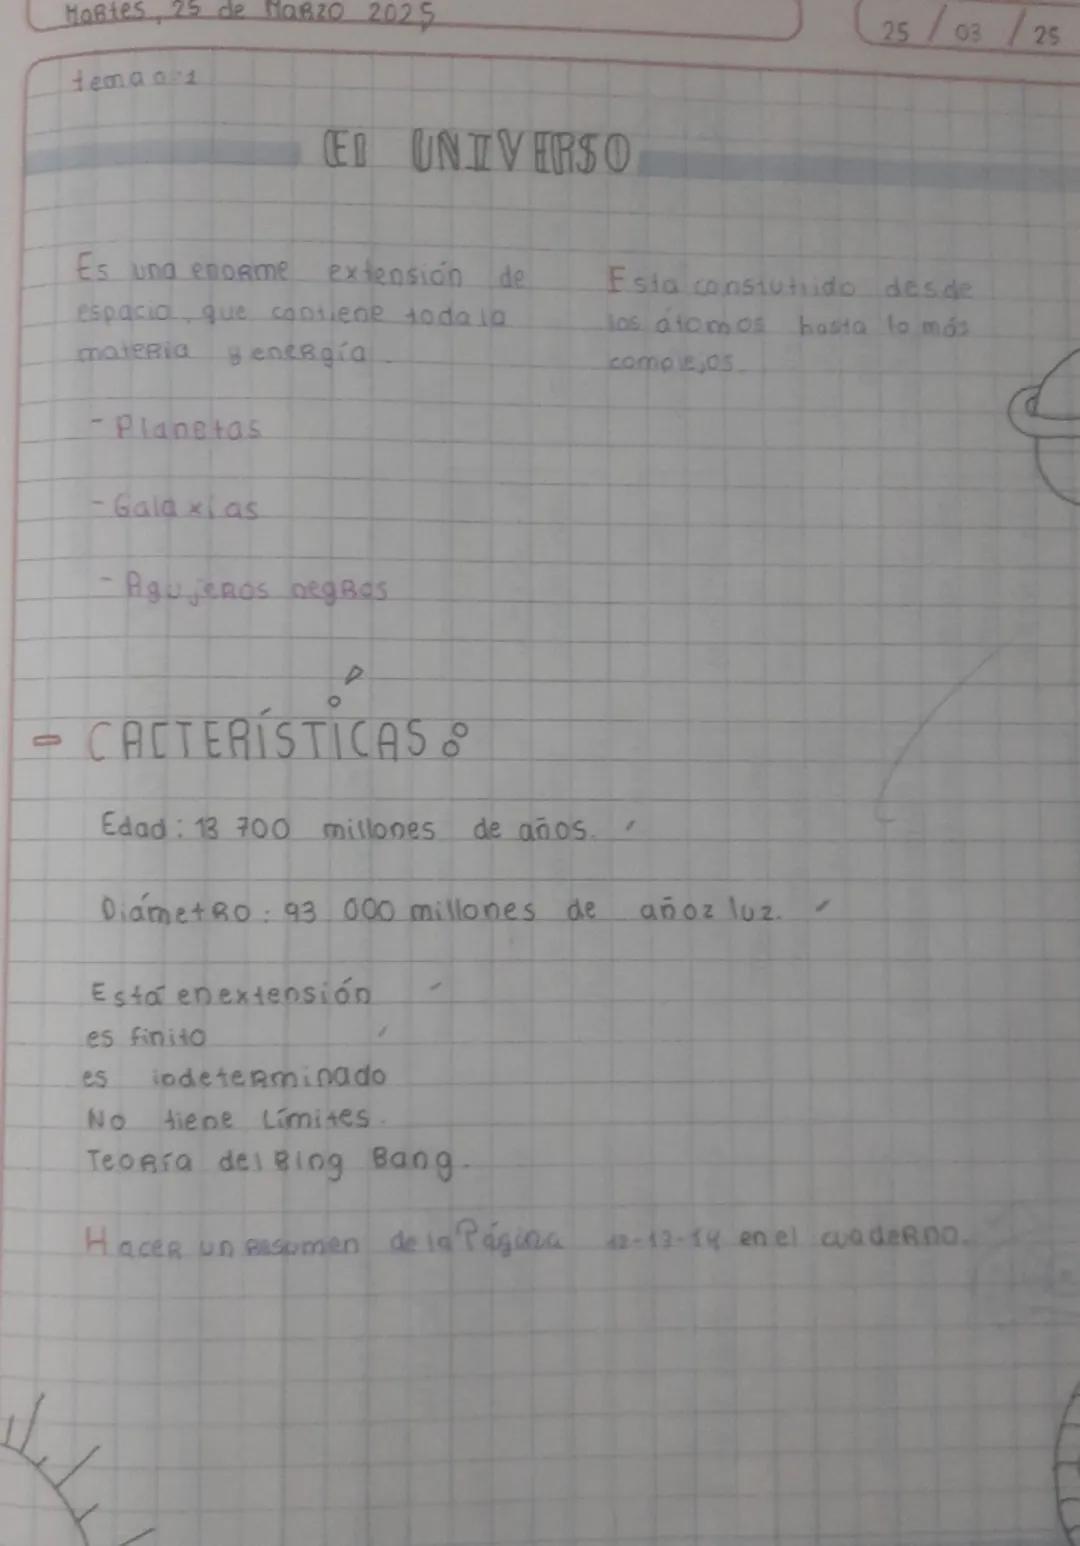 Martes, 25 de Marzo 2025
25 / 03 / 25
tema n:1
El UNIVERSO
Es una enorme extensión de
espacio, que contiene toda la
materia y energía.
Esta constutido desde
los átomos hasta lo más
complejos.
- Planetas
- Galaxias
- Agujeros negros
- CACTERÍSTICAS:
Edad: 13 700 millones de años.
Diámetro: 93 000 millones de añoz luz.
Está en extensión
es finito
es indeterminado
No tiene Límites.
Teoría del Bing Bang.
Hacer un resumen de la Página 12-13-14 en el cuaderno.